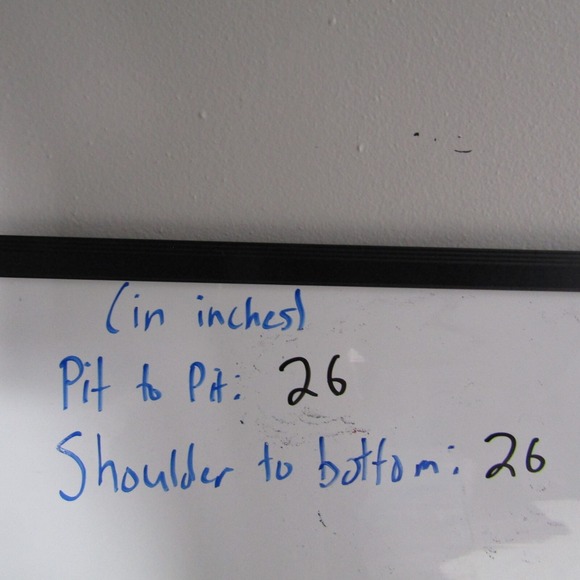 (in inches)
Pit to Pit: 26
Shoulder to bottom: 26